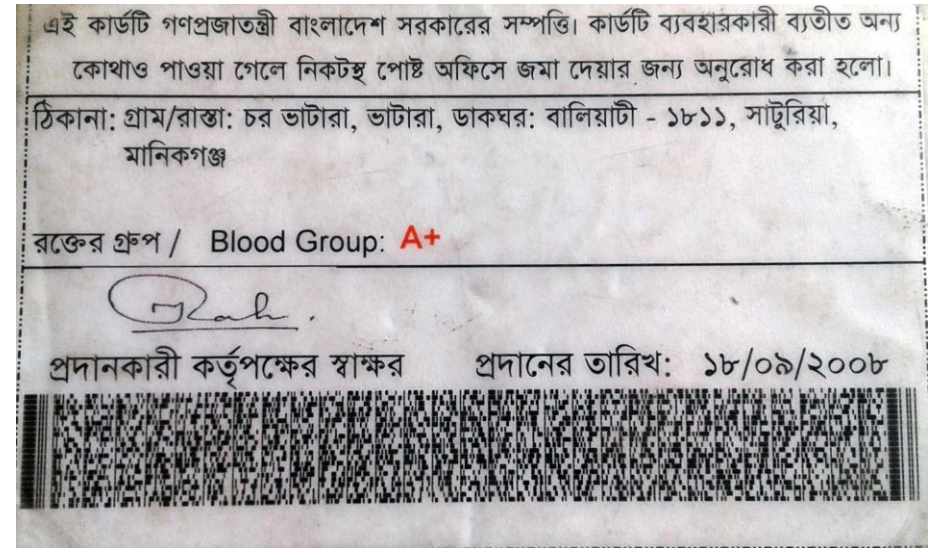 এই কার্ডটি গণপ্রজাতন্ত্রী বাংলাদেশ সরকারের সম্পত্তি। কার্ডটি ব্যবহারকারী ব্যতীত অন্য
কোথাও পাওয়া গেলে নিকটস্থ পোষ্ট অফিসে জমা দেয়ার জন্য অনুরোধ করা হলো।
ঠিকানা: গ্রাম/রাস্তা: চর ভাটারা, ভাটারা, ডাকঘর: বালিয়াটী - ১৮১১, সাটুরিয়া,
মানিকগঞ্জ
রক্তের গ্রুপ / Blood Group: A+
প্রদানকারী কর্তৃপক্ষের স্বাক্ষর প্রদানের তারিখ: ১৮/০৯/২০০৮